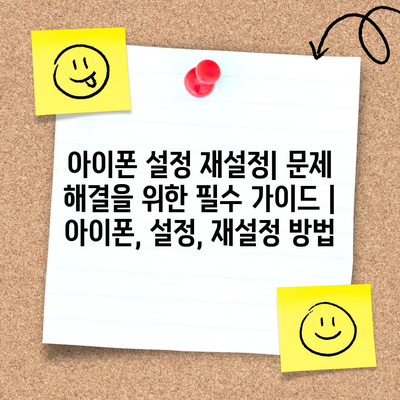 아이폰 설정 재설정| 문제
해결을 위한 필수 가이드 |
아이폰, 설정, 재설정 방법